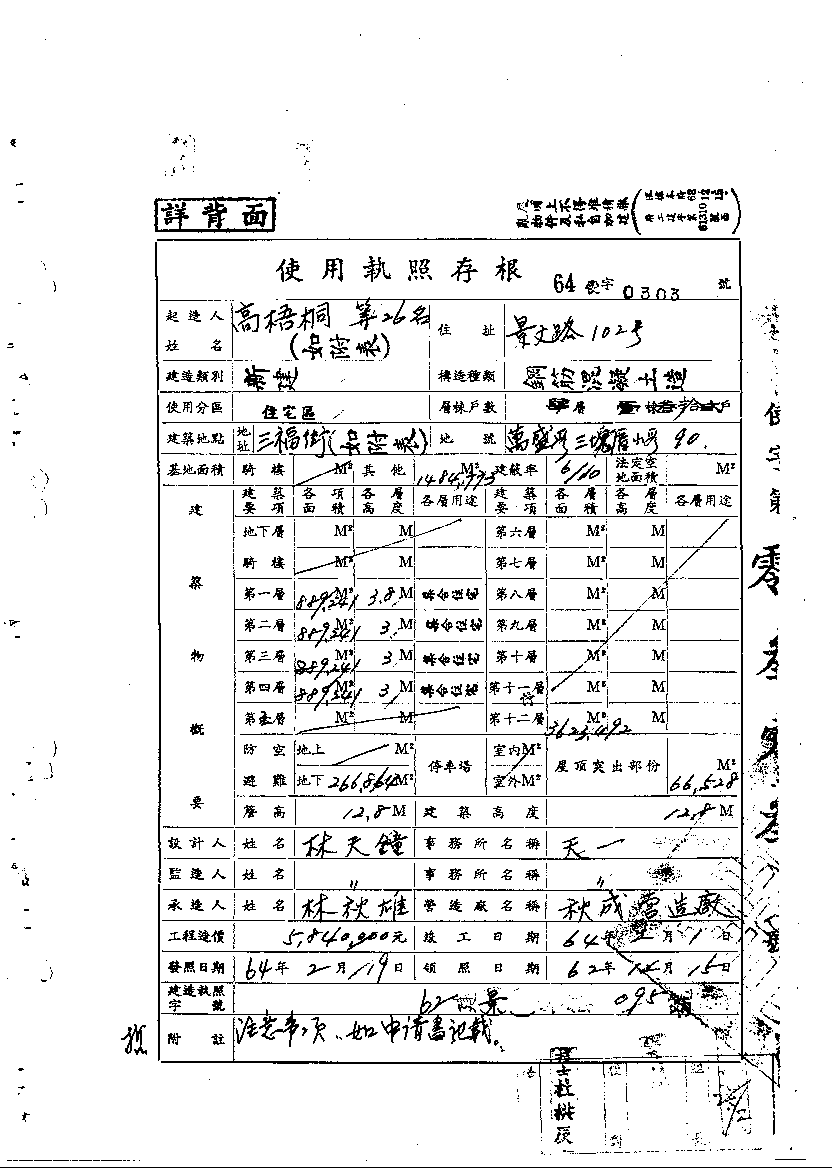 詳背面
使用執照存根 64 使字 0303 號
起造人姓名 高梧桐 等26名 (如附表) 住址 景文路102号
建造類別 新建 構造種類 鋼筋混凝土造
使用分區 住宅區 層棟戶數 層 戶
建築地點 地址 三福街(如附表) 地號 萬盛段三塊厝小段 90.
基地面積 騎樓 M² 其他 1484,993 M² 建蔽率 6/10 法定空地面積 M²
建築物概要 建築要項 各項面積 各層高度 各層用途 建築要項 各層面積 各層高度 各層用途
地下層 M² M 第六層 M² M
騎樓 M² M 第七層 M² M
第一層 889,241 M² 3,8 M 集合住宅 第八層 M² M
第二層 889,241 M² 3, M 集合住宅 第九層 M² M
第三層 889,241 M² 3 M 集合住宅 第十層 M² M
第四層 889,241 M² 3, M 集合住宅 第十一層 M² M
第五層 M² M 第十二層 3623,492 M² M
防空避難 地上 M² 停車場 室內M² 屋頂突出部份 M²
地下 266,864 M² 室外M² 66,528
簷高 12,8 M 建築高度 12,8 M
設計人 姓名 林天鐘 事務所名稱 天一
監造人 姓名 〃 事務所名稱 〃
承造人 姓名 林秋雄 營造廠名稱 秋成營造廠
工程造價 5,840,000元 竣工日期 64年 月1日
發照日期 64年2月19日 領照日期 62年12月15日
建造執照字號 62 景 095 號
附註 注意事項、如申請書記載。